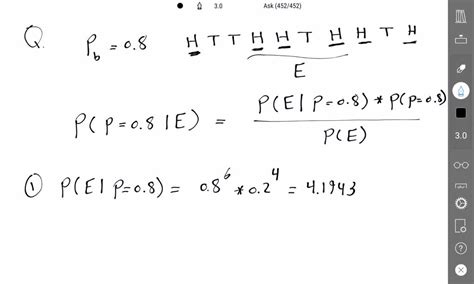 3.0 Ask (452/452)
Q. P_b = 0.8 H T T H H T H H T H
E
P(p=0.8 | E) = P(E | p=0.8) * P(p=0.8)
P(E)
① P(E | p=0.8) = 0.8^6 * 0.2^4 = 4.1943
3.0